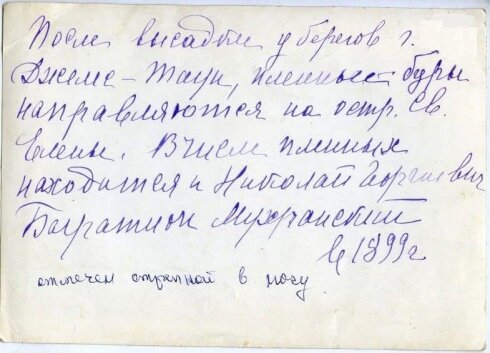 После высадки у берегов г.
Джемс-Таун, пленные буры
направляются на остр. Св.
Елены. В числе пленных
находится и Николай Георгиевич
Багратион Мухранский
в 1899 г
отмечен стрелкой в носу